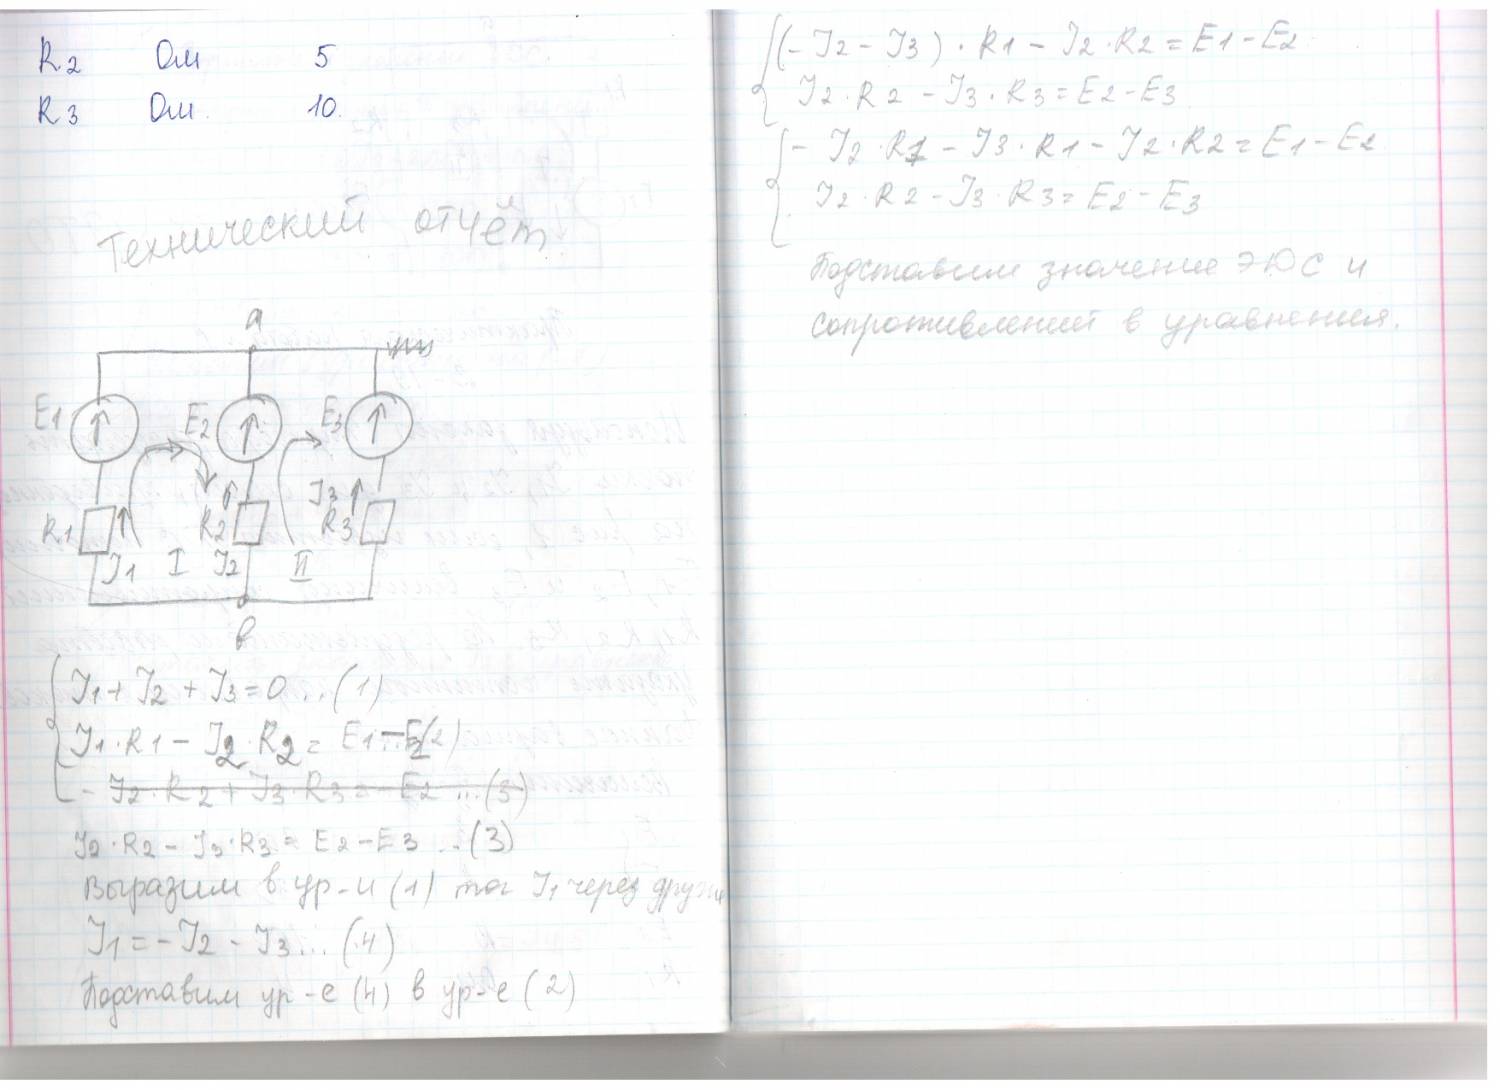 R2 Ом 5
R3 Ом 10.
Технический отчёт
a
E1 E2 E3
I3
R1 R2 R3
I1 I I2 II
в
I1 + I2 + I3 = 0 ... (1)
I1 · R1 - I2 · R2 = E1 - E2 ... (2)
- I2 · R2 + I3 · R3 = - E2 ... (3)
I2 · R2 - I3 · R3 = E2 - E3 ... (3)
Выразим в ур-и (1) ток I1 через другие
I1 = - I2 - I3 ... (4)
Подставим ур-е (4) в ур-е (2)
(- I2 - I3) · R1 - I2 · R2 = E1 - E2
I2 · R2 - I3 · R3 = E2 - E3
- I2 · R1 - I3 · R1 - I2 · R2 = E1 - E2
I2 · R2 - I3 · R3 = E2 - E3
Подставим значение ЭЮС и
сопротивлений в уравнения.